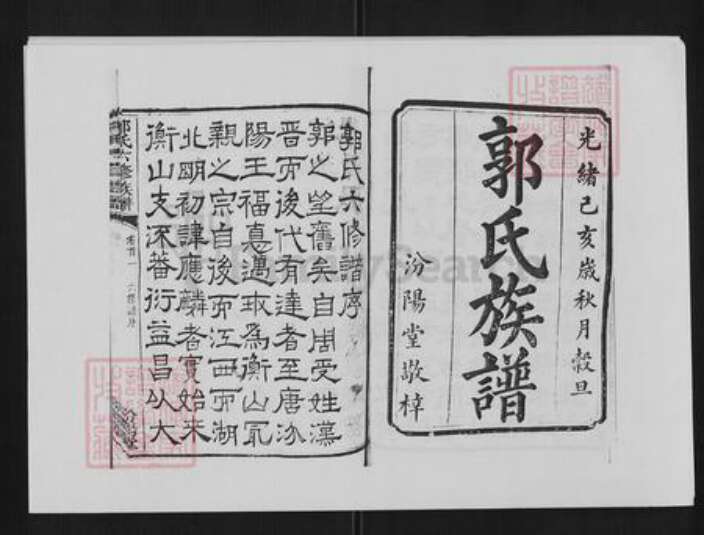 光緒己亥歲秋月穀旦
郭氏族譜
汾陽堂敬梓
郭氏六修譜序
郭之望舊矣自周受姓漢
晉而後代有達者至唐汾
陽王福惪邁
為衡山
親之宗自後而江西而湖
北明初諱應麟者實始來
衡山支派蕃衍益昌以大
郭氏六修族譜
卷首一 六修譜序